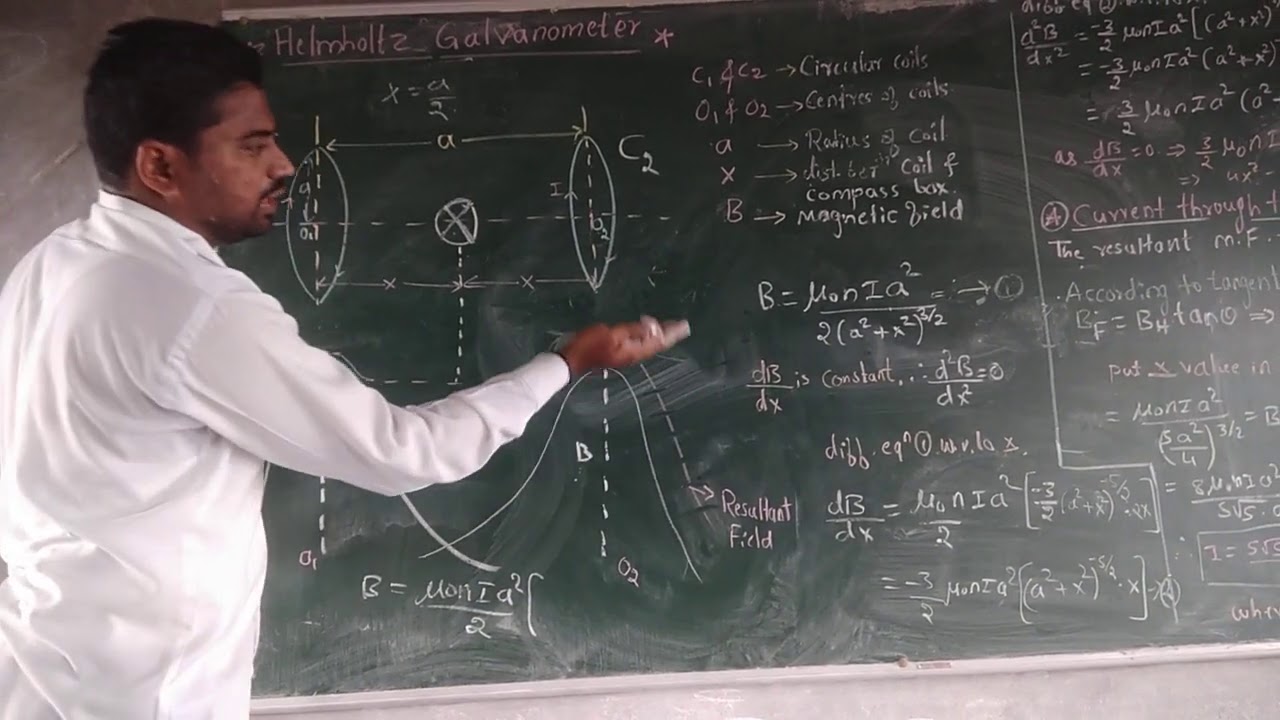 Helmholtz Galvanometer *
x = a/2
a
C₂
a
I
O₁
O₂
x x
B
Resultant
Field
O₁ O₂
B = μ₀nIa²/2 [
C₁ & C₂ → Circular coils
O₁ & O₂ → Centres of coils
a → Radius of Coil
x → dist. betn Coil &
compass box.
B → Magnetic field
B = μ₀nIa² / 2(a²+x²)^3/2 → ①
dB/dx is constant, ∴ d²B/dx² = 0
diff. eqⁿ ① w.r. to x.
dB/dx = μ₀nIa²/2 [-3/2 (a²+x²)^-5/2 · 2x]
= -3/2 μ₀nIa² [(a²+x²)^-5/2 · x] → ②
d²B/dx² = -3/2 μ₀nIa² [(a²+x²)
= -3/2 μ₀nIa² (a²+x²)
= -3/2 μ₀nIa² (a²+
as dB/dx = 0 ⇒ 3/2 μ₀nI
⇒ 4x² -
Ⓐ Current through t
The resultant M.F.
According to tangent
B_F = B_H tanθ ⇒
put x value in
= μ₀nIa² / (5a²/4)^3/2 = B
= 8μ₀nIa² / 5√5 · a
∴ I = 5√5
wher